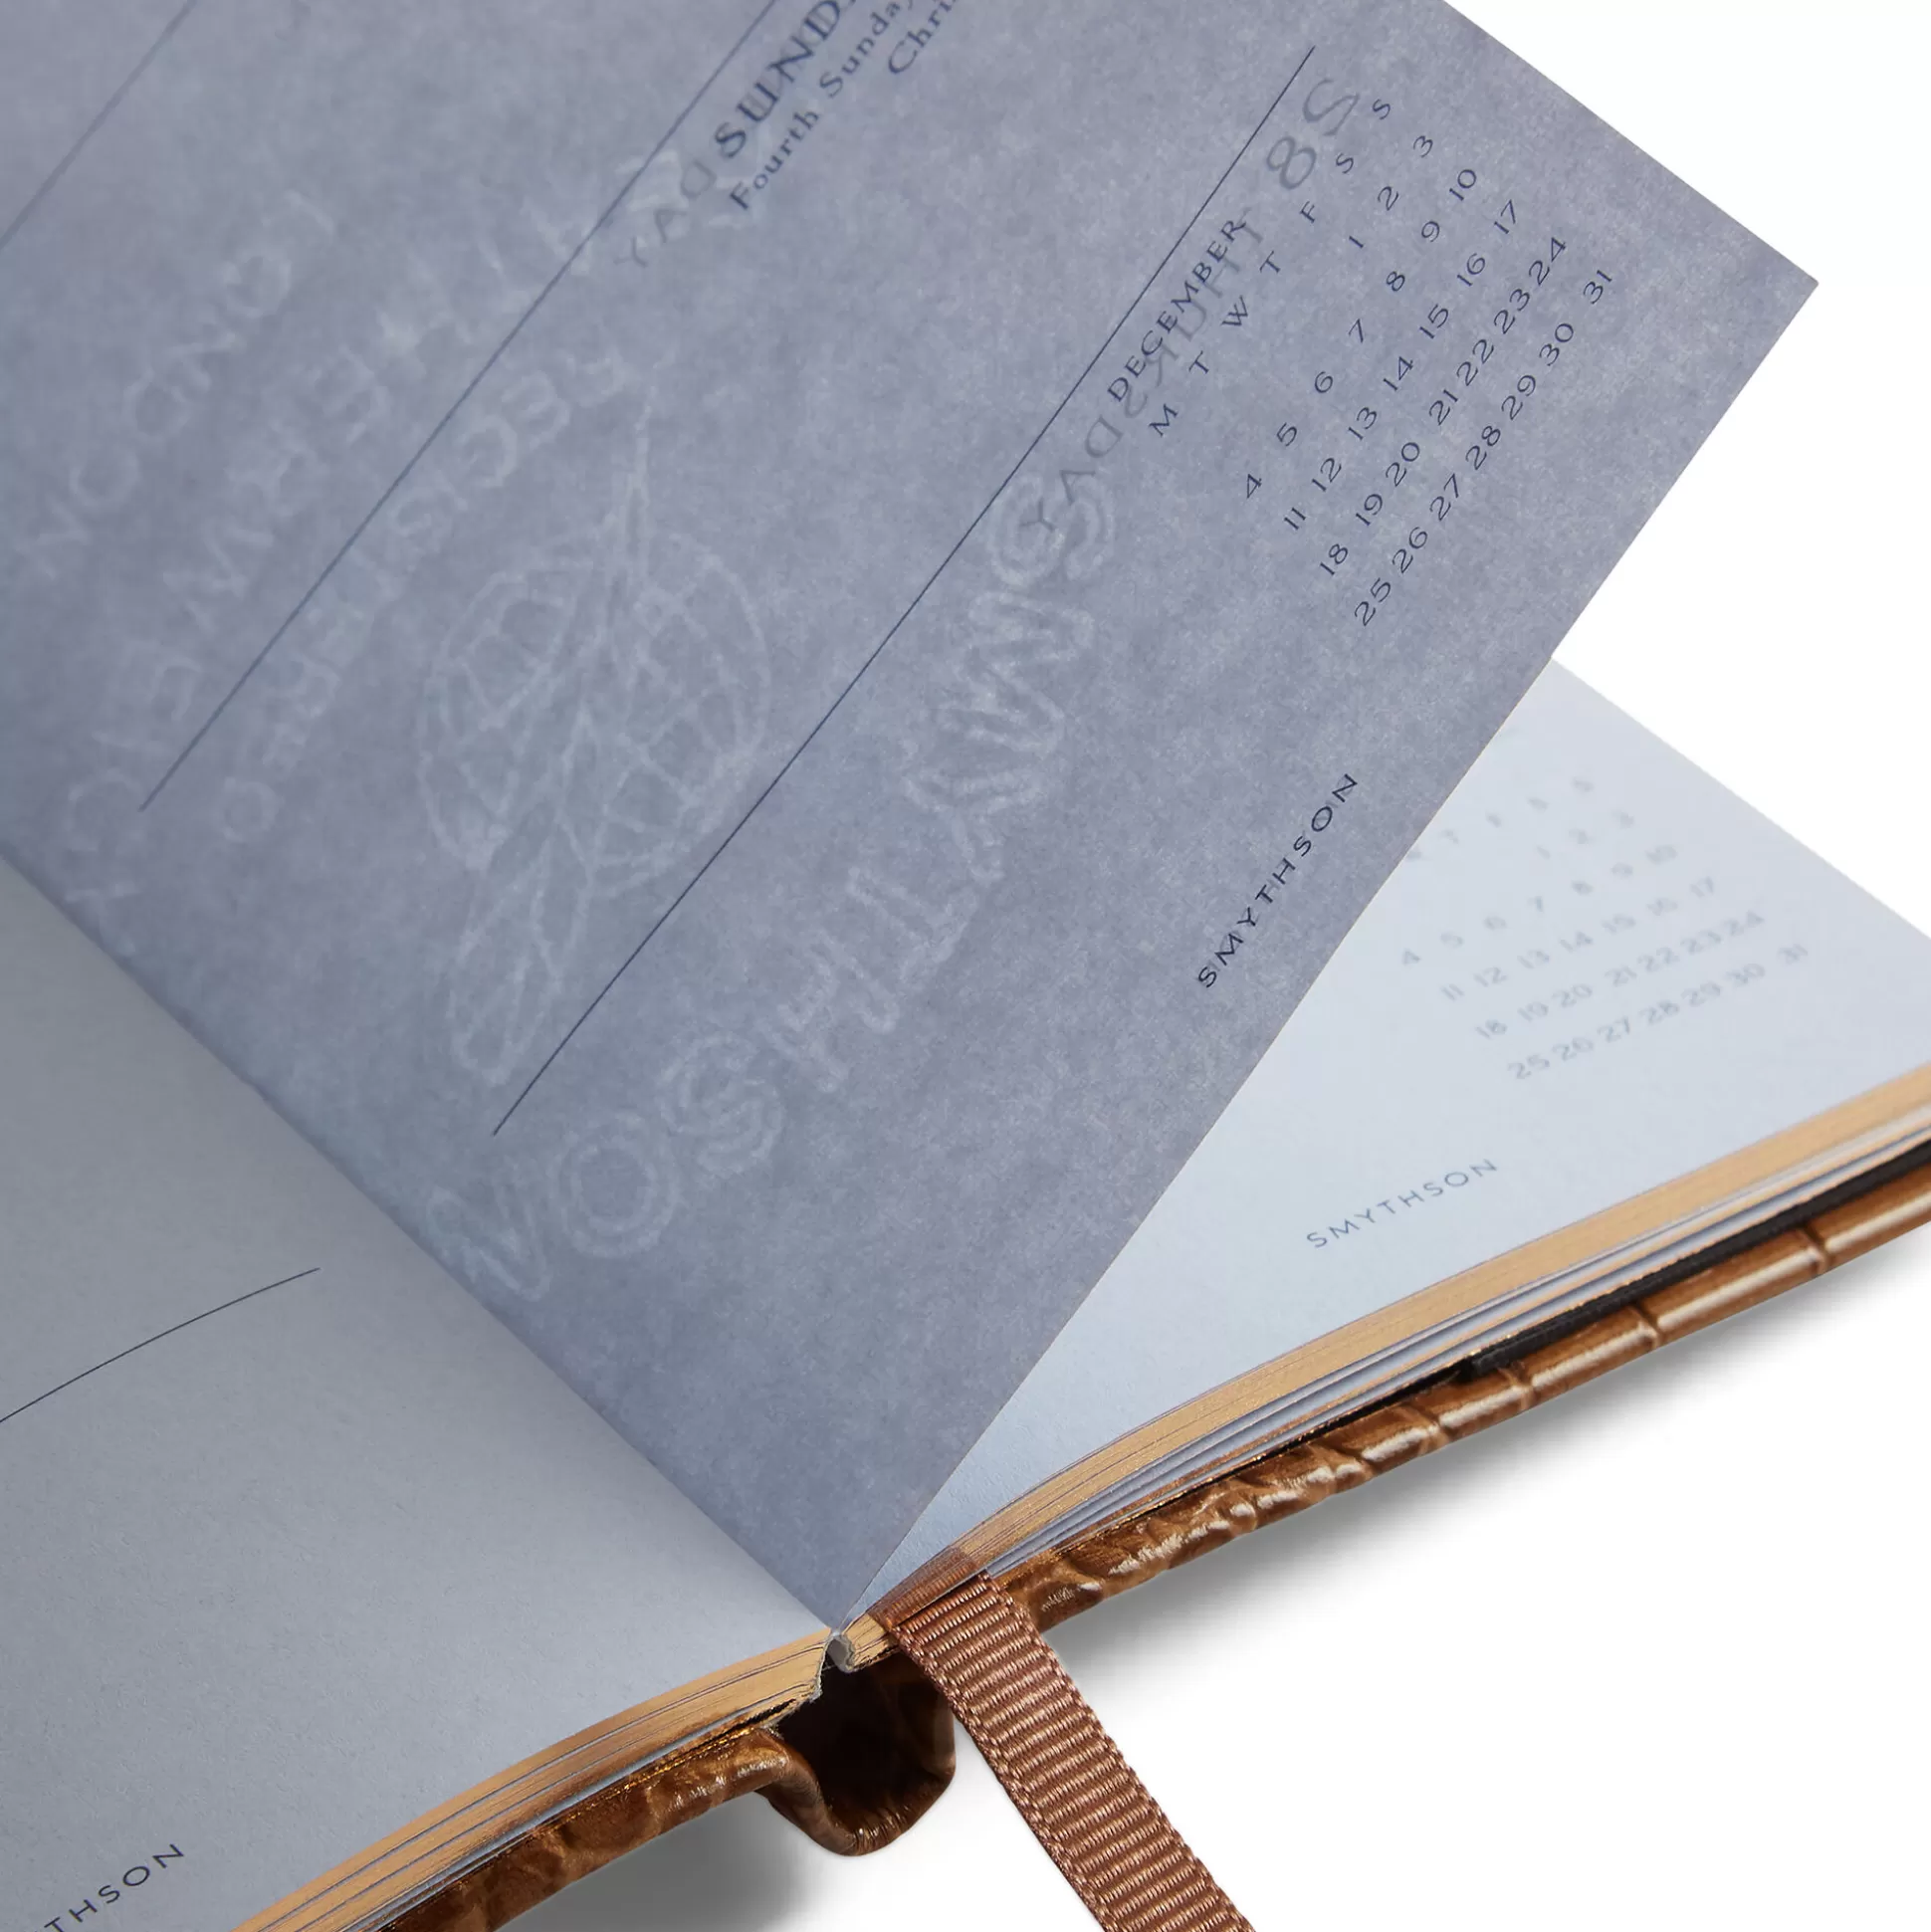 SUND
Fourth Sunday
Chri
DECEMBER
M T W T F S S
1 2 3
4 5 6 7 8 9 10
11 12 13 14 15 16 17
18 19 20 21 22 23 24
25 26 27 28 29 30 31
SMYTHSON
28 THURSDAY
DAY
LONDON
FEATHERWEIGHT
REGISTERED
SMYTHSON
T F S S
1 2 3
4 5 6 7 8 9 10
11 12 13 14 15 16 17
18 19 20 21 22 23 24
25 26 27 28 29 30 31
SMYTHSON
THSON